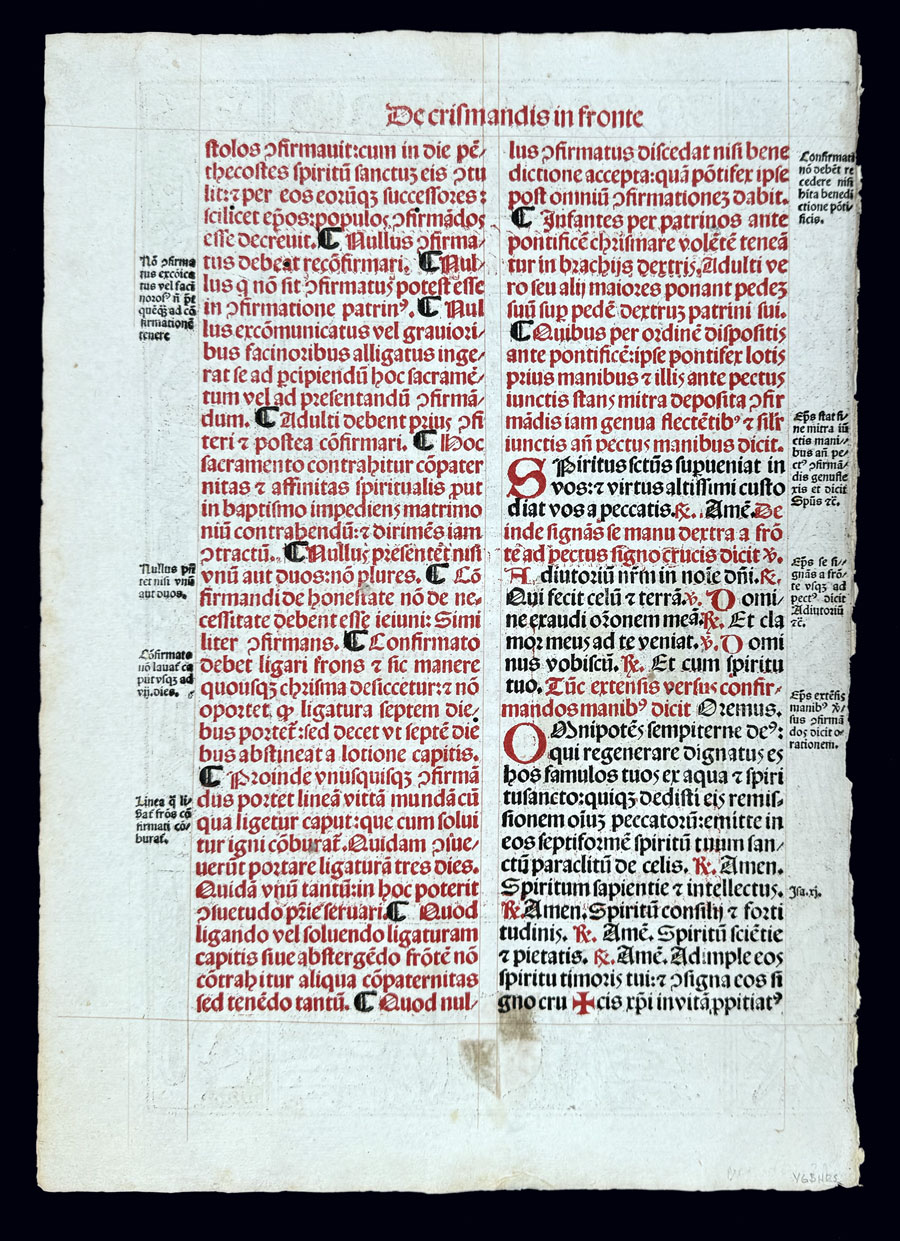 De crismandis in fronte
stolos ꝯfirmauit:cum in die pē⸗
thecostes spiritū sanctuꝫ eis ꝯtu
lit:⁊ per eos eorūqꝫ successores:
scilicet ep̄os:populos ꝯfirmādos
esse decreuit. ¶ Nullus ꝯfirma⸗
tus debeat recōfirmari. ¶ Nul⸗
lus q nō sit ꝯfirmatus potest esse
in ꝯfirmatione patrinꝰ. ¶ Nul
lus excōmunicatus vel grauiori⸗
bus facinoribus alligatus inge⸗
rat se ad ꝑcipiendū hoc sacramē⸗
tum vel ad presentandū ꝯfirmā⸗
dum. ¶ Adulti debent prius ꝯfi
teri ⁊ postea cōfirmari. ¶ Hoc
sacramento contrahitur cōpater
nitas ⁊ affinitas spiritualis ꝓut
in baptismo impediens matrimo
niū contrahendū:⁊ dirimēs iam
ꝯtractū. ¶ Nullus presentet nisi
vnū aut duos:nō plures. ¶ Cō
firmandi de honestate nō de ne⸗
cessitate debent esse ieiuni: Simi
liter ꝯfirmans. ¶ Confirmato
debet ligari frons ⁊ sic manere
quousqꝫ chrisma desiccetur:⁊ nō
oportet ꝙ ligatura septem die⸗
bus portet̄:sed decet vt septē die
bus abstineat a lotione capitis.
¶ Proinde vnusquisqꝫ ꝯfirmā
dus portet lineā vittā mundā cū
qua ligetur caput:que cum solui
tur igni cōburat̄. Quidam ꝯsue⸗
uerūt portare ligaturā tres dies.
Quidā vnū tantū:in hoc poterit
ꝯsuetudo pr̄ie seruari. ¶ Quod
ligando vel soluendo ligaturam
capitis siue abstergēdo frōtē nō
cōtrahitur aliqua cōpaternitas
sed tenēdo tantū. ¶ Quod nul⸗
Nō ꝯfirma
tus excōica
tus vel faci
norosꝰ n̄ p̄t
quēqꝫ ad cō
firmationē
tenere
Nullus pn̄
tet nisi vnū
aut duos.
Cōfirmato
nō lauat̄ ca
put vsqꝫ ad
vij.dies.
Linea q̄ li⸗
gat̄ frōs cō
firmati cō⸗
burat̄.
lus ꝯfirmatus discedat nisi bene
dictione accepta:quā pōtifex ipse
post omniū ꝯfirmationeꝫ dabit.
¶ Infantes per patrinos ante
pontificē chrismare volētē teneā
tur in brachijs dextris. Adulti ve
ro seu alij maiores ponant pedeꝫ
suū suꝑ pedē dextruꝫ patrini sui.
¶ Quibus per ordinē dispositis
ante pontificē:ipse pontifex lotis
prius manibus ⁊ illis ante pectus
iunctis stans mitra deposita ꝯfir
mādis iam genua flectētibꝰ ⁊ silr̄
iunctis an̄ pectus manibus dicit.
Spiritus sctūs suꝑueniat in
vos:⁊ virtus altissimi custo
diat vos a peccatis. ℟. Amē. De
inde signās se manu dextra a frō
te ad pectus signo crucis dicit ℣.
Adiutoriū nr̄m in noīe dn̄i. ℟.
Qui fecit celū ⁊ terrā. ℣. Domi⸗
ne exaudi or̄onem meā. ℟. Et cla
mor meus ad te veniat. ℣. Domi
nus vobiscū. ℟. Et cum spiritu
tuo. Tūc extensis versus confir⸗
mandos manibꝰ dicit Oremus.
Omnipotēs sempiterne deꝰ:
qui regenerare dignatus es
hos famulos tuos ex aqua ⁊ spiri
tusancto:quiqꝫ dedisti eis remis⸗
sionem oīuꝫ peccatorū:emitte in
eos septiformē spiritū tuum san⸗
ctū paraclitū de celis. ℟. Amen.
Spiritum sapientie ⁊ intellectus.
℟. Amen. Spiritū consilij ⁊ forti
tudinis. ℟. Amē. Spiritū sciētie
⁊ pietatis. ℟. Amē. Adimple eos
spiritu timoris tui:⁊ ꝯsigna eos si
gno cru ✠ cis xp̄i in vitā ꝓpitiatꝰ
Confirmati
nō debēt re
cedere nisi
hita benedi
ctione pōti⸗
ficis.
Ep̄s stat si⸗
ne mitra iū
ctis mani⸗
bus an̄ pe⸗
ctꝰ ꝯfirmā⸗
dis genufle
xis et dicit
Spūs ⁊c̄.
Ep̄s se si⸗
gnās a frō⸗
te vsqꝫ ad
pectꝰ dicit
Adiutoriū
⁊c̄.
Ep̄s extēsis
manibꝰ ℣⸗
sus ꝯfirmā
dos dicit o⸗
rationem.
Isa.xj.